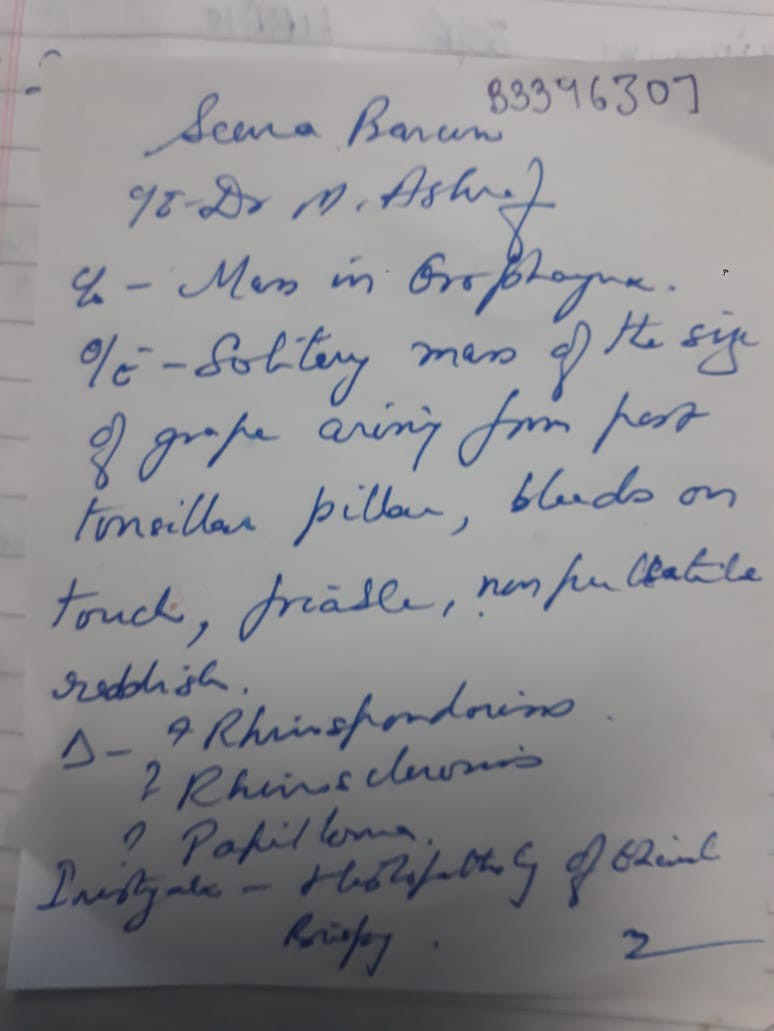 B3396307
Seema Barun
C/O - Dr M. Ashraf
C/o - Mass in Oropharynx.
O/E - Solitary mass of the size
of grape arising from post
tonsillar pillar, bleeds on
touch, friable, non pulsatile
reddish.
Δ - ? Rhinospondorios
? Rhinoscleromis
? Papilloma.
- Histopatholy of
Biospy.